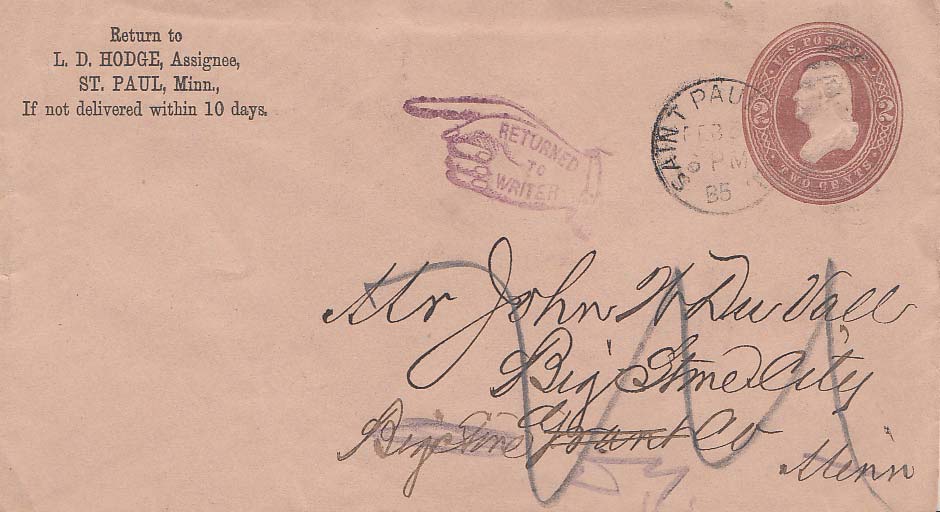 Return to
L. D. HODGE, Assignee,
ST. PAUL, Minn.,
If not delivered within 10 days.
RETURNED
TO
WRITER
SAINT PAUL
FEB
6 PM
85
U.S. POSTAGE
TWO CENTS
2 2
Mr John W Du Vall
Big Stone City
Big Stone Grant Co
Minn